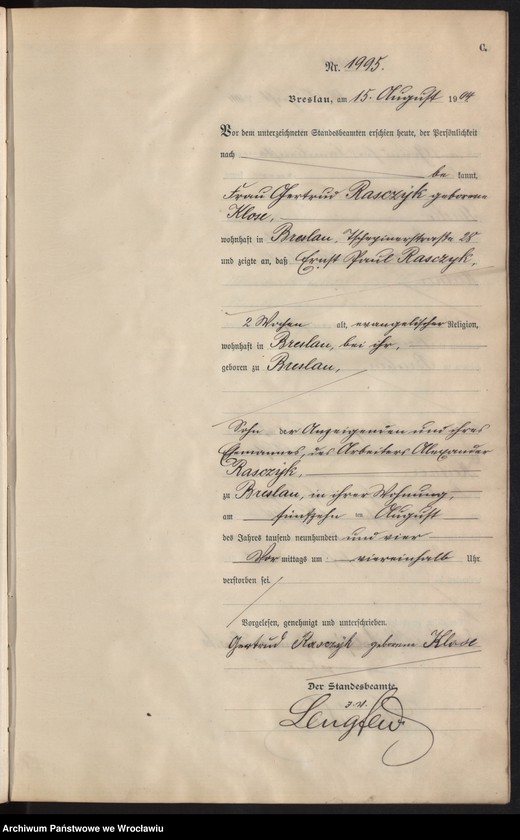 C.
Nr. 1995.
Breslau, am 15. August 1904.
Vor dem unterzeichneten Standesbeamten erschien heute, der Persönlichkeit
nach
be kannt,
Frau Gertrud Rasczyk geborene
Klose,
wohnhaft in Breslau, Tschepinerstraße 28
und zeigte an, daß Ernst Paul Rasczyk,
2 Wochen alt, evangelischer Religion,
wohnhaft in Breslau, bei ihr,
geboren zu Breslau,
Sohn der Anzeigenden und ihres
Ehemannes, des Arbeiters Alexander
Rasczyk,
zu Breslau, in ihrer Wohnung,
am fünfzehn ten August
des Jahres tausend neunhundert und vier
Vor mittags um viereinhalb Uhr
verstorben sei.
Vorgelesen, genehmigt und unterschrieben.
Gertrud Rasczyk geborene Klose
Der Standesbeamte.
z. V.
Lengfeld
Archiwum Państwowe we Wrocławiu